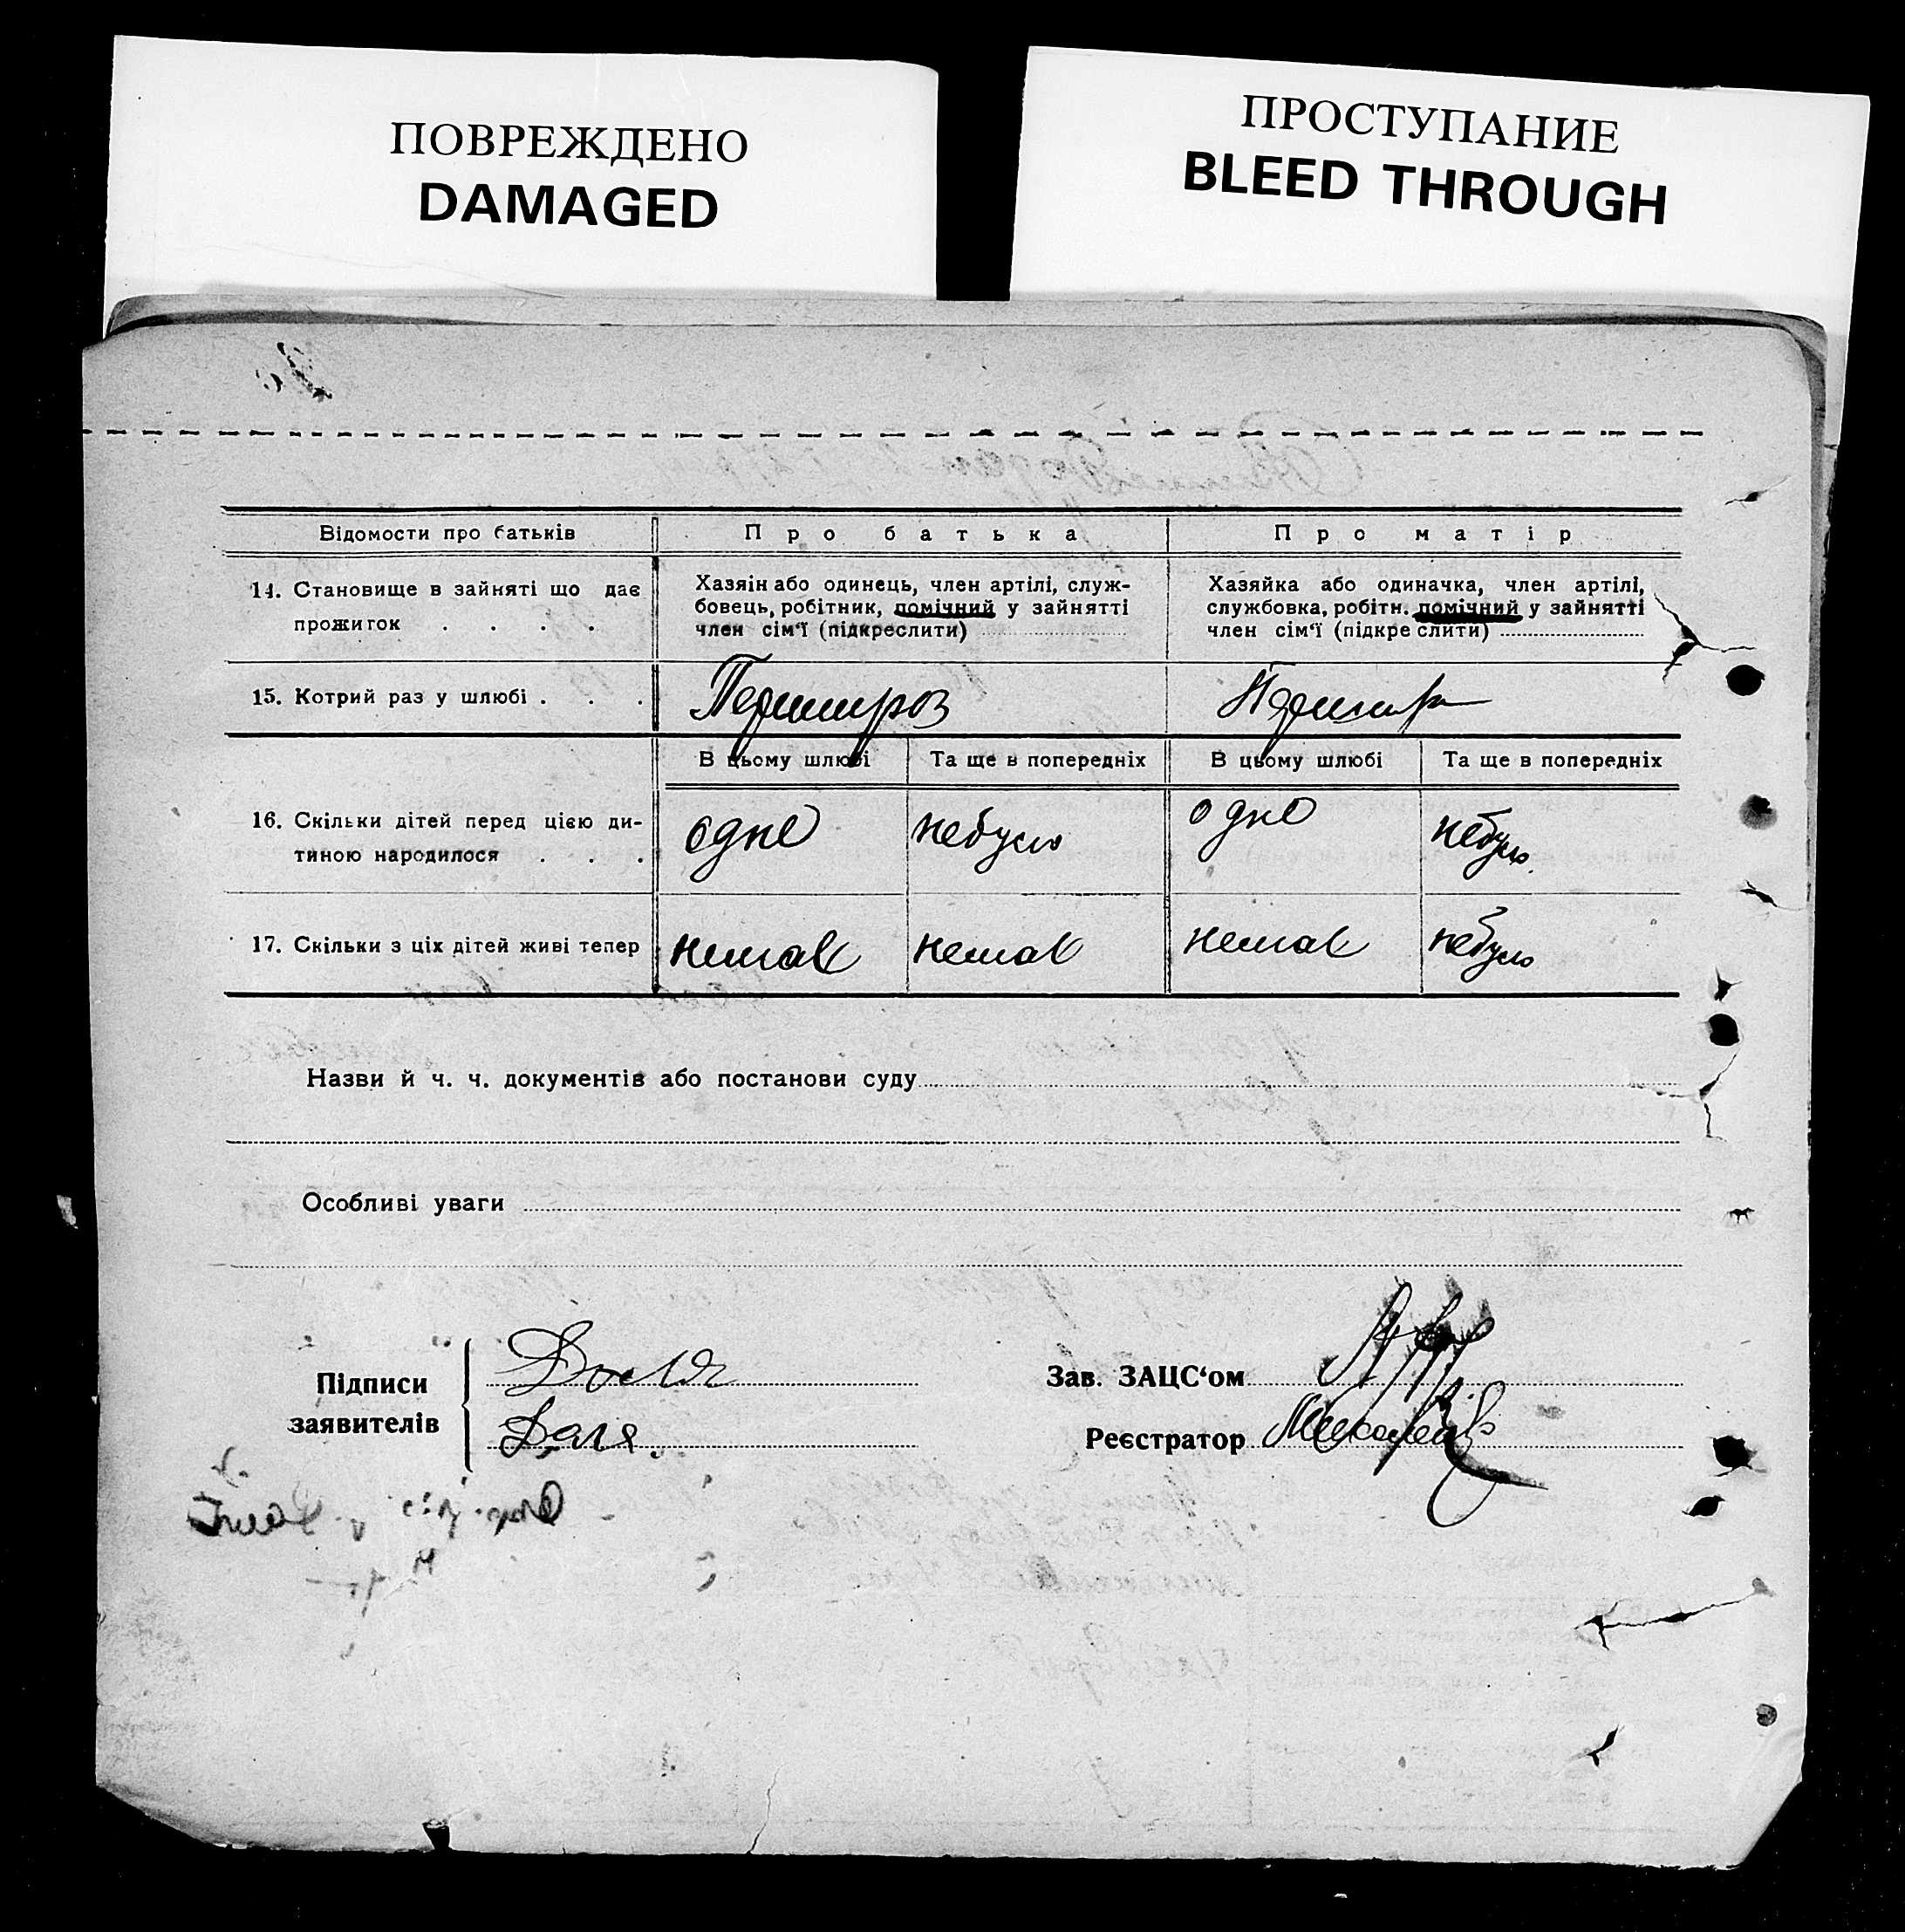 ПОВРЕЖДЕНО
DAMAGED
ПРОСТУПАНИЕ
BLEED THROUGH
Відомости про батьків
Про батька
Про матір
14. Становище в зайняті що дає
прожиток . . . .
Хазяін або одинець, член артілі, служ-
бовець, робітник, помічний у зайнятті
член сім‘ї (підкреслити)
Хазяйка або одиначка, член артілі,
службовка, робітн. помічний у зайнятті
член сім‘ї (підкреслити)
15. Котрий раз у шлюбі . . .
Перший раз
Перший р
В цьому шлюбі
Та ще в попередніх
В цьому шлюбі
Та ще в попередніх
16. Скільки дітей перед цією ди-
тиною народилося . . .
одне
небуло
одне
небуло.
17. Скільки з ціх дітей живі тепер
немає
немає
немає
небуло
Назви й ч. ч. документів або постанови суду
Особливі уваги
Підписи
заявителів
Доля
Доля.
Зав. ЗАЦС‘ом
Реєстратор